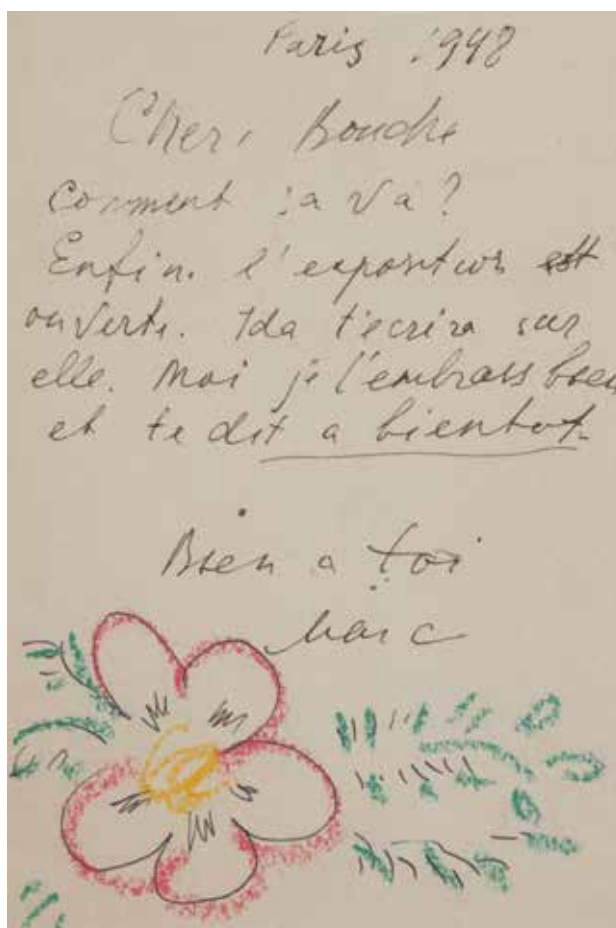 Paris 1948
Cher, Bouche
Comment ça va ?
Enfin. l'exposition est
ouverte. Ida t'ecrira sur
elle. Moi je t'embrass bien
et te dit a bientot
Bien a toi
Marc